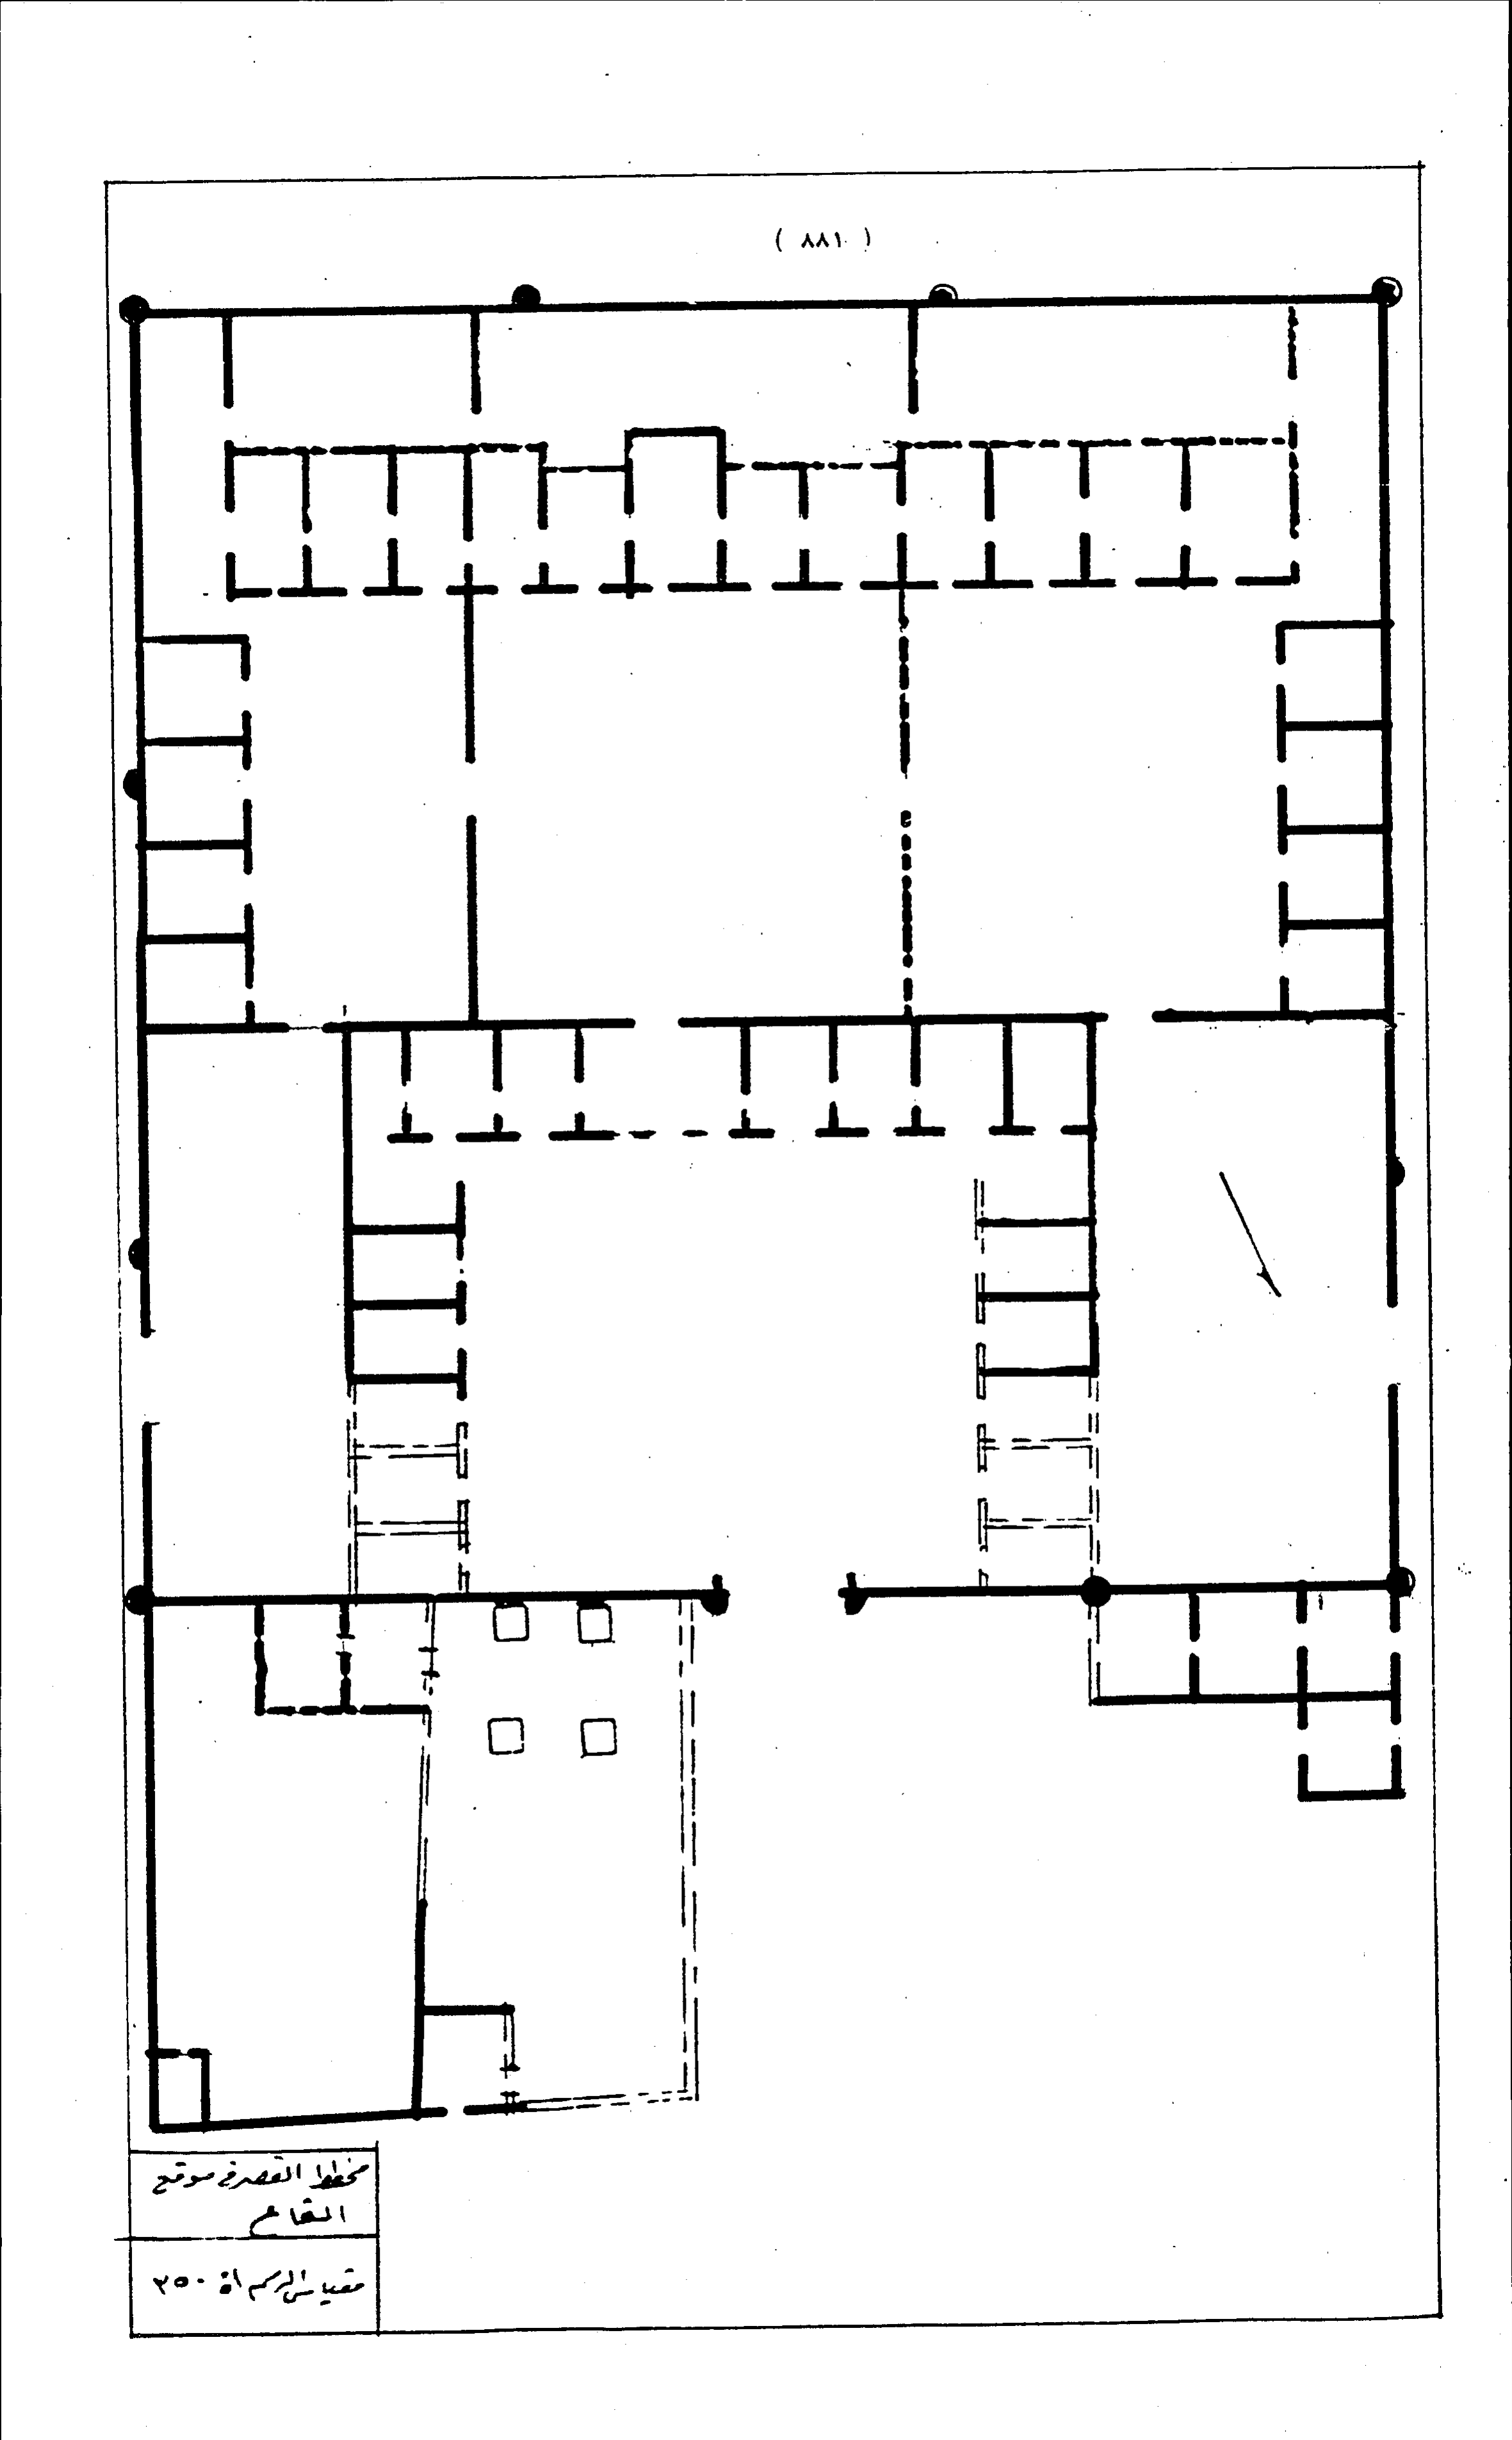 ( ٨٨١ )
مخطط القصر في موقع
القاع
مقياس الرسم ٣٥٠